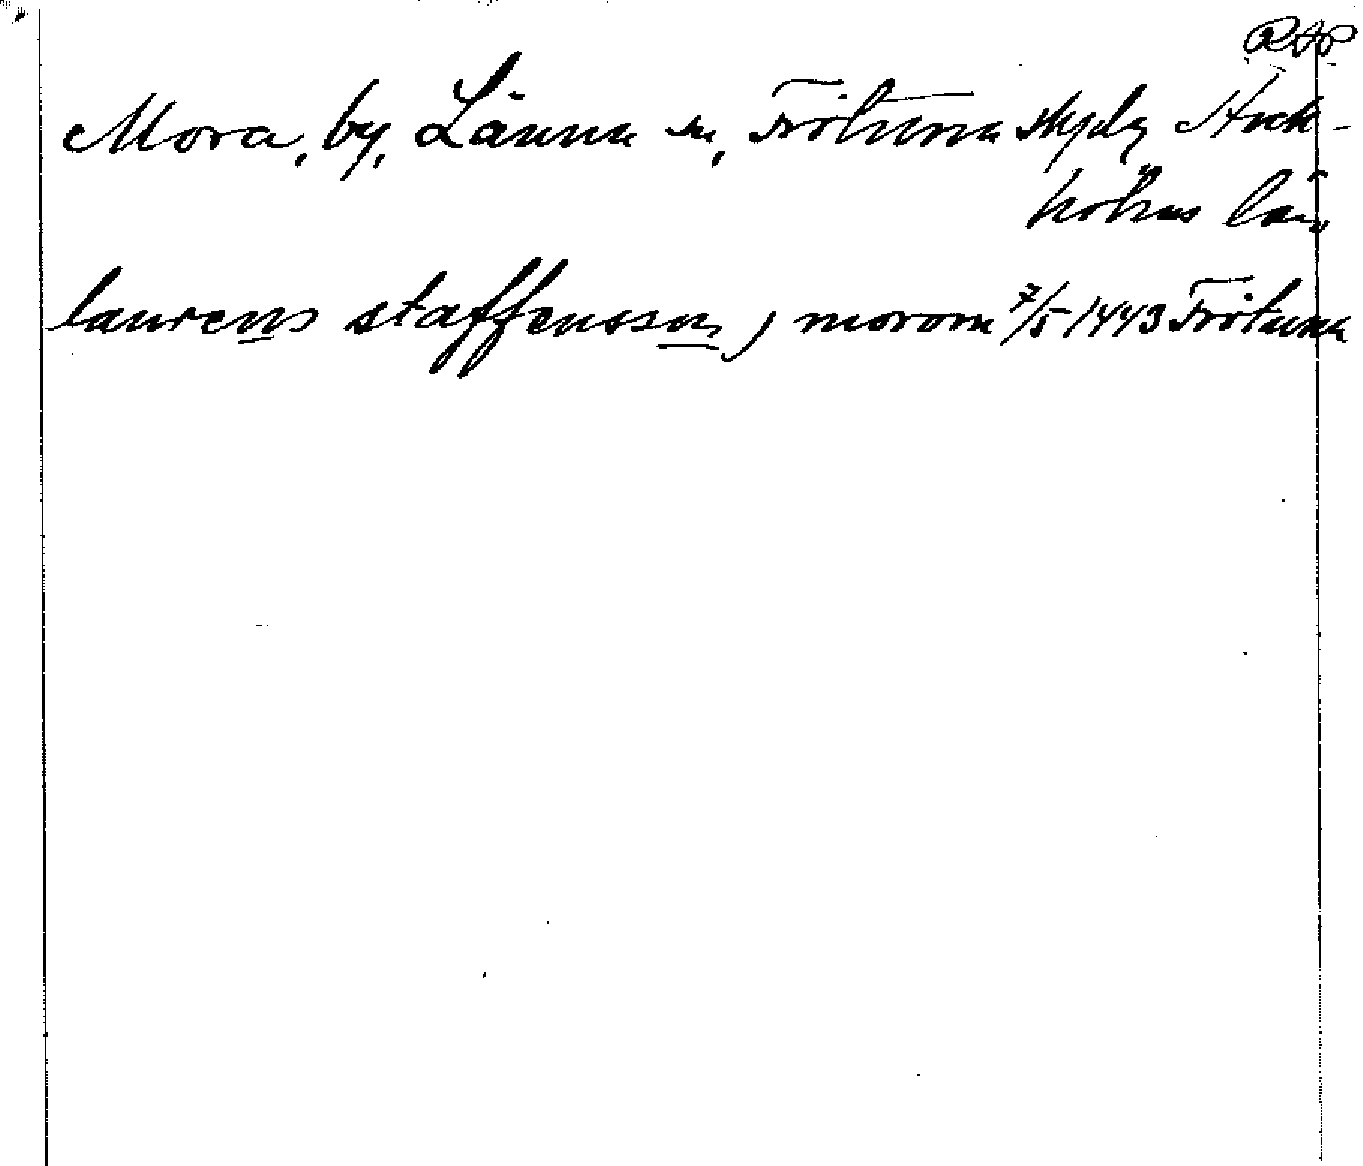 RAP
Mora, by, Länna sn, Frötuna skg, Stock-
holms län
laurens staffensson j morom 7/5 1443 Frötuna